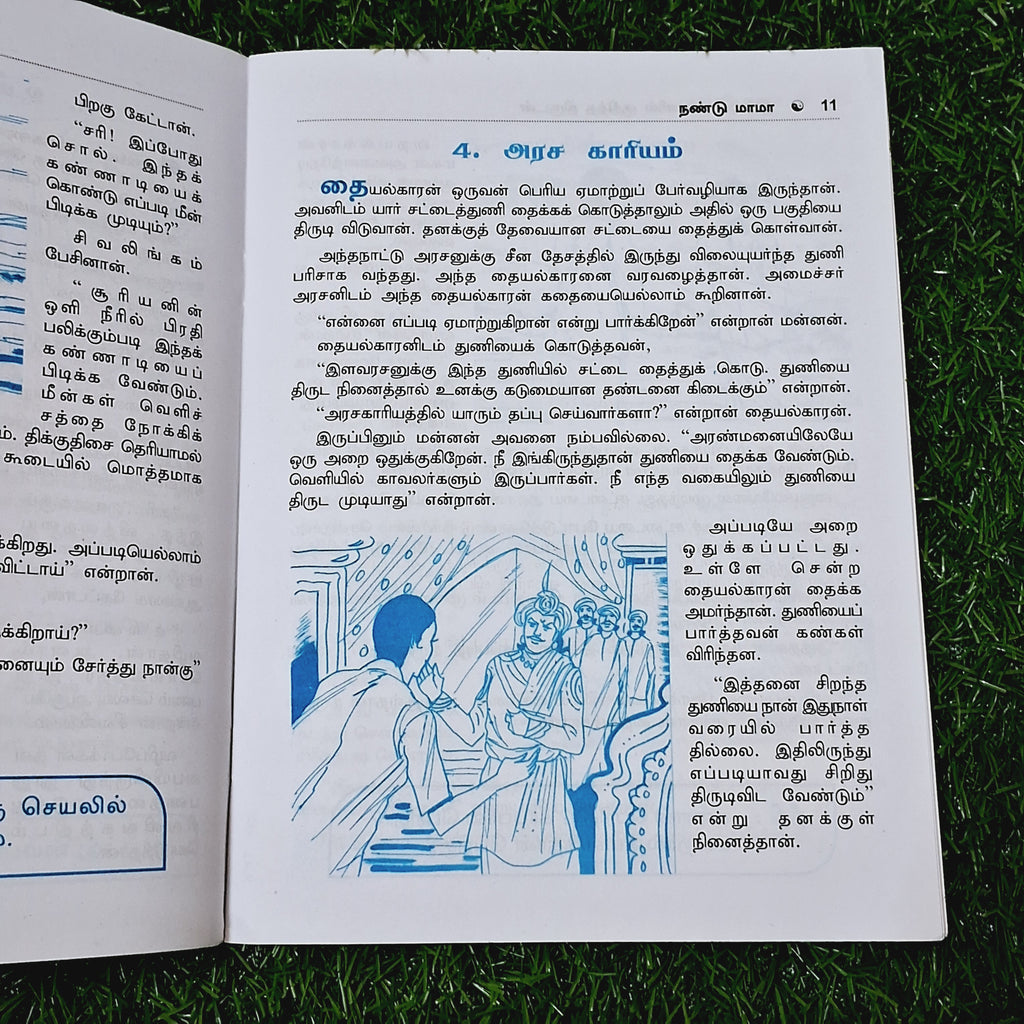 பிறகு கேட்டான்.
“சரி! இப்போது
சொல். இந்தக்
கண்ணாடியைக்
கொண்டு எப்படி மீன்
பிடிக்க முடியும்?”
சிவலிங்கம்
பேசினான்.
“சூரியனின்
ஒளி நீரில் பிரதி
பலிக்கும்படி இந்தக்
கண்ணாடியைப்
பிடிக்க வேண்டும்.
மீன்கள் வெளிச்
சத்தை நோக்கிக்
திக்குதிசை தெரியாமல்
கூடையில் மொத்தமாக
அப்படியெல்லாம்
என்றான்.
சேர்த்து நான்கு”
செயலில்
நண்டு மாமா 11
4. அரச காரியம்
தையல்காரன் ஒருவன் பெரிய ஏமாற்றுப் பேர்வழியாக இருந்தான்.
அவனிடம் யார் சட்டைத்துணி தைக்கக் கொடுத்தாலும் அதில் ஒரு பகுதியை
திருடி விடுவான். தனக்குத் தேவையான சட்டையை தைத்துக் கொள்வான்.
அந்தநாட்டு அரசனுக்கு சீன தேசத்தில் இருந்து விலையுயர்ந்த துணி
பரிசாக வந்தது. அந்த தையல்காரனை வரவழைத்தான். அமைச்சர்
அரசனிடம் அந்த தையல்காரன் கதையையெல்லாம் கூறினான்.
“என்னை எப்படி ஏமாற்றுகிறான் என்று பார்க்கிறேன்” என்றான் மன்னன்.
தையல்காரனிடம் துணியைக் கொடுத்தவன்,
“இளவரசனுக்கு இந்த துணியில் சட்டை தைத்துக் கொடு. துணியை
திருட நினைத்தால் உனக்கு கடுமையான தண்டனை கிடைக்கும்” என்றான்.
“அரசகாரியத்தில் யாரும் தப்பு செய்வார்களா?” என்றான் தையல்காரன்.
இருப்பினும் மன்னன் அவனை நம்பவில்லை. “அரண்மனையிலேயே
ஒரு அறை ஒதுக்குகிறேன். நீ இங்கிருந்துதான் துணியை தைக்க வேண்டும்.
வெளியில் காவலர்களும் இருப்பார்கள். நீ எந்த வகையிலும் துணியை
திருட முடியாது” என்றான்.
அப்படியே அறை
ஒதுக்கப்பட்டது.
உள்ளே சென்ற
தையல்காரன் தைக்க
அமர்ந்தான். துணியைப்
பார்த்தவன் கண்கள்
விரிந்தன.
“இத்தனை சிறந்த
துணியை நான் இதுநாள்
வரையில் பார்த்த
தில்லை. இதிலிருந்து
எப்படியாவது சிறிது
திருடிவிட வேண்டும்”
என்று தனக்குள்
நினைத்தான்.